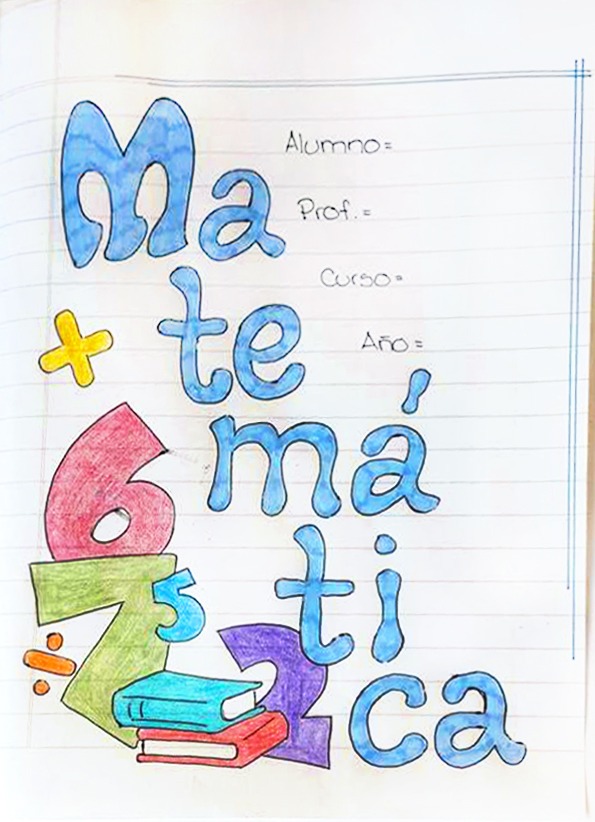 Ma
Alumno=
Prof.=
te
Curso=
Año=
+
má
6
7
5
tí
÷
2
ca